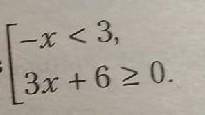 -x < 3,
3x + 6 ≥ 0.